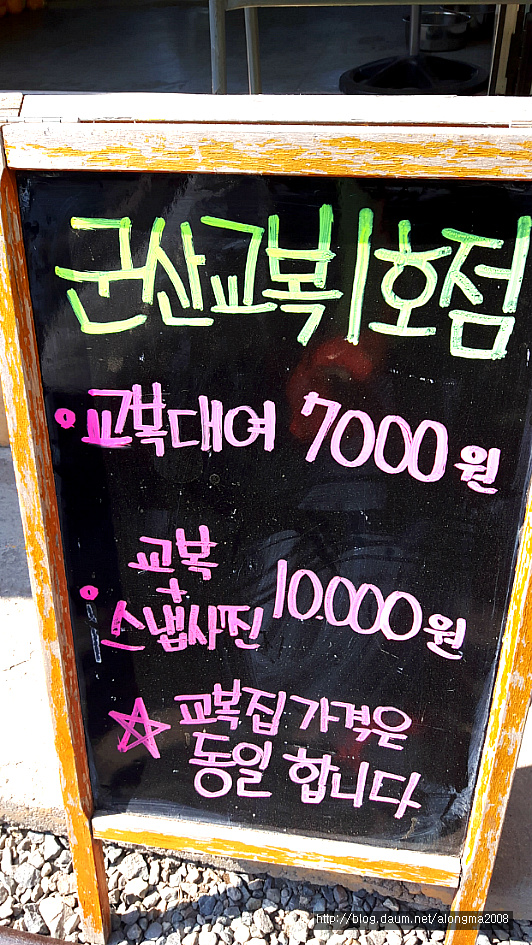 군산교복1호점
교복대여 7000원
교복
+
스냅사진 10.000원
☆ 교복집 가격은
동일 합니다
http://blog.daum.net/alongma2008